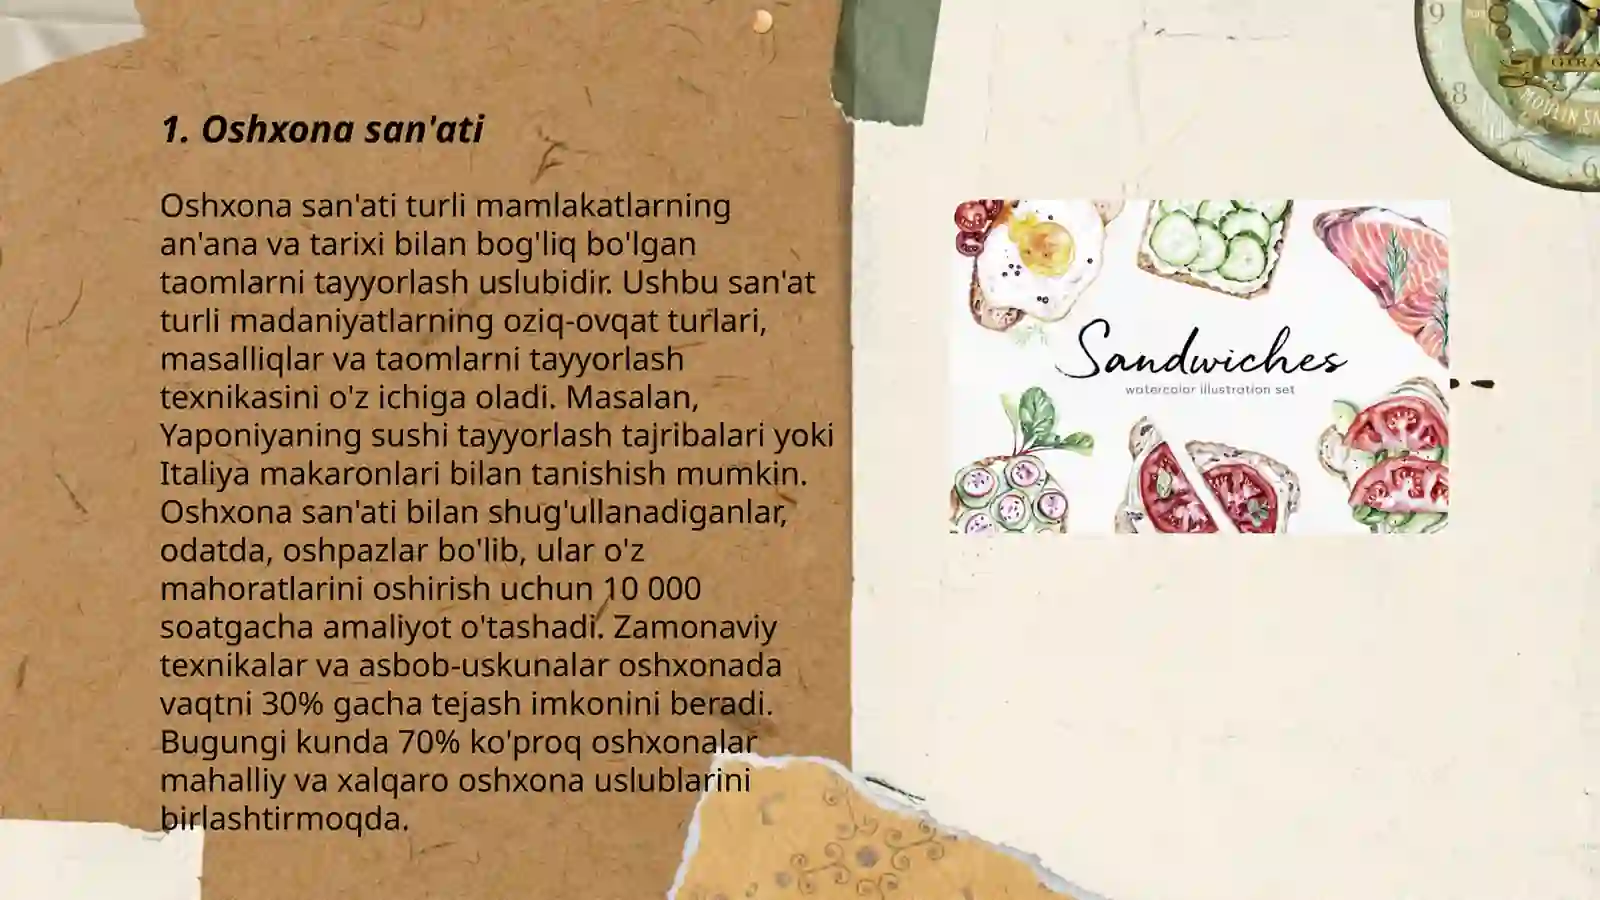 1. Oshxona san'ati
Oshxona san'ati turli mamlakatlarning
an'ana va tarixi bilan bog'liq bo'lgan
taomlarni tayyorlash uslubidir. Ushbu san'at
turli madaniyatlarning oziq-ovqat turlari,
masalliqlar va taomlarni tayyorlash
texnikasini o'z ichiga oladi. Masalan,
Yaponiyaning sushi tayyorlash tajribalari yoki
Italiya makaronlari bilan tanishish mumkin.
Oshxona san'ati bilan shug'ullanadiganlar,
odatda, oshpazlar bo'lib, ular o'z
mahoratlarini oshirish uchun 10 000
soatgacha amaliyot o'tashadi. Zamonaviy
texnikalar va asbob-uskunalar oshxonada
vaqtni 30% gacha tejash imkonini beradi.
Bugungi kunda 70% ko'proq oshxonalar
mahalliy va xalqaro oshxona uslublarini
birlashtirmoqda.
Sandwiches
watercolor illustration set
9
8
6
MOULIN